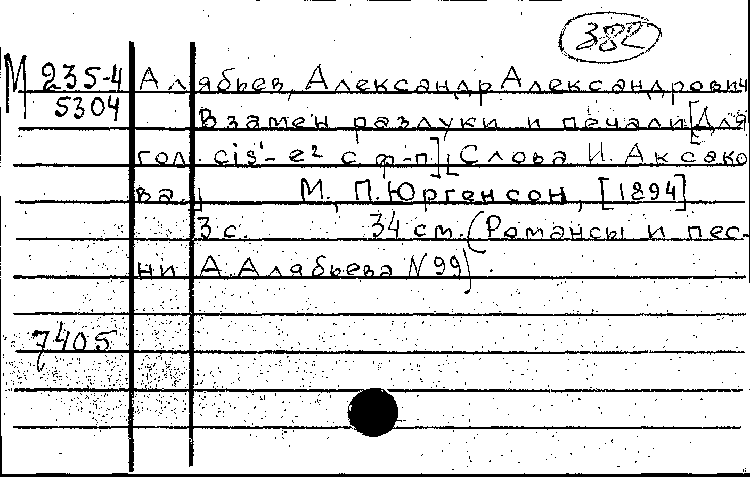 382
М 235-4 Алябьев, Александр Александрович
5304 Взамен разлуки и печали [Для
гол. cis¹- e² с ф-п.] [Слова И. Аксако
ва.] М., П. Юргенсон, [1894]
3 с. 34 см. (Романсы и пес-
ни А. Алябьева N 99).
7405